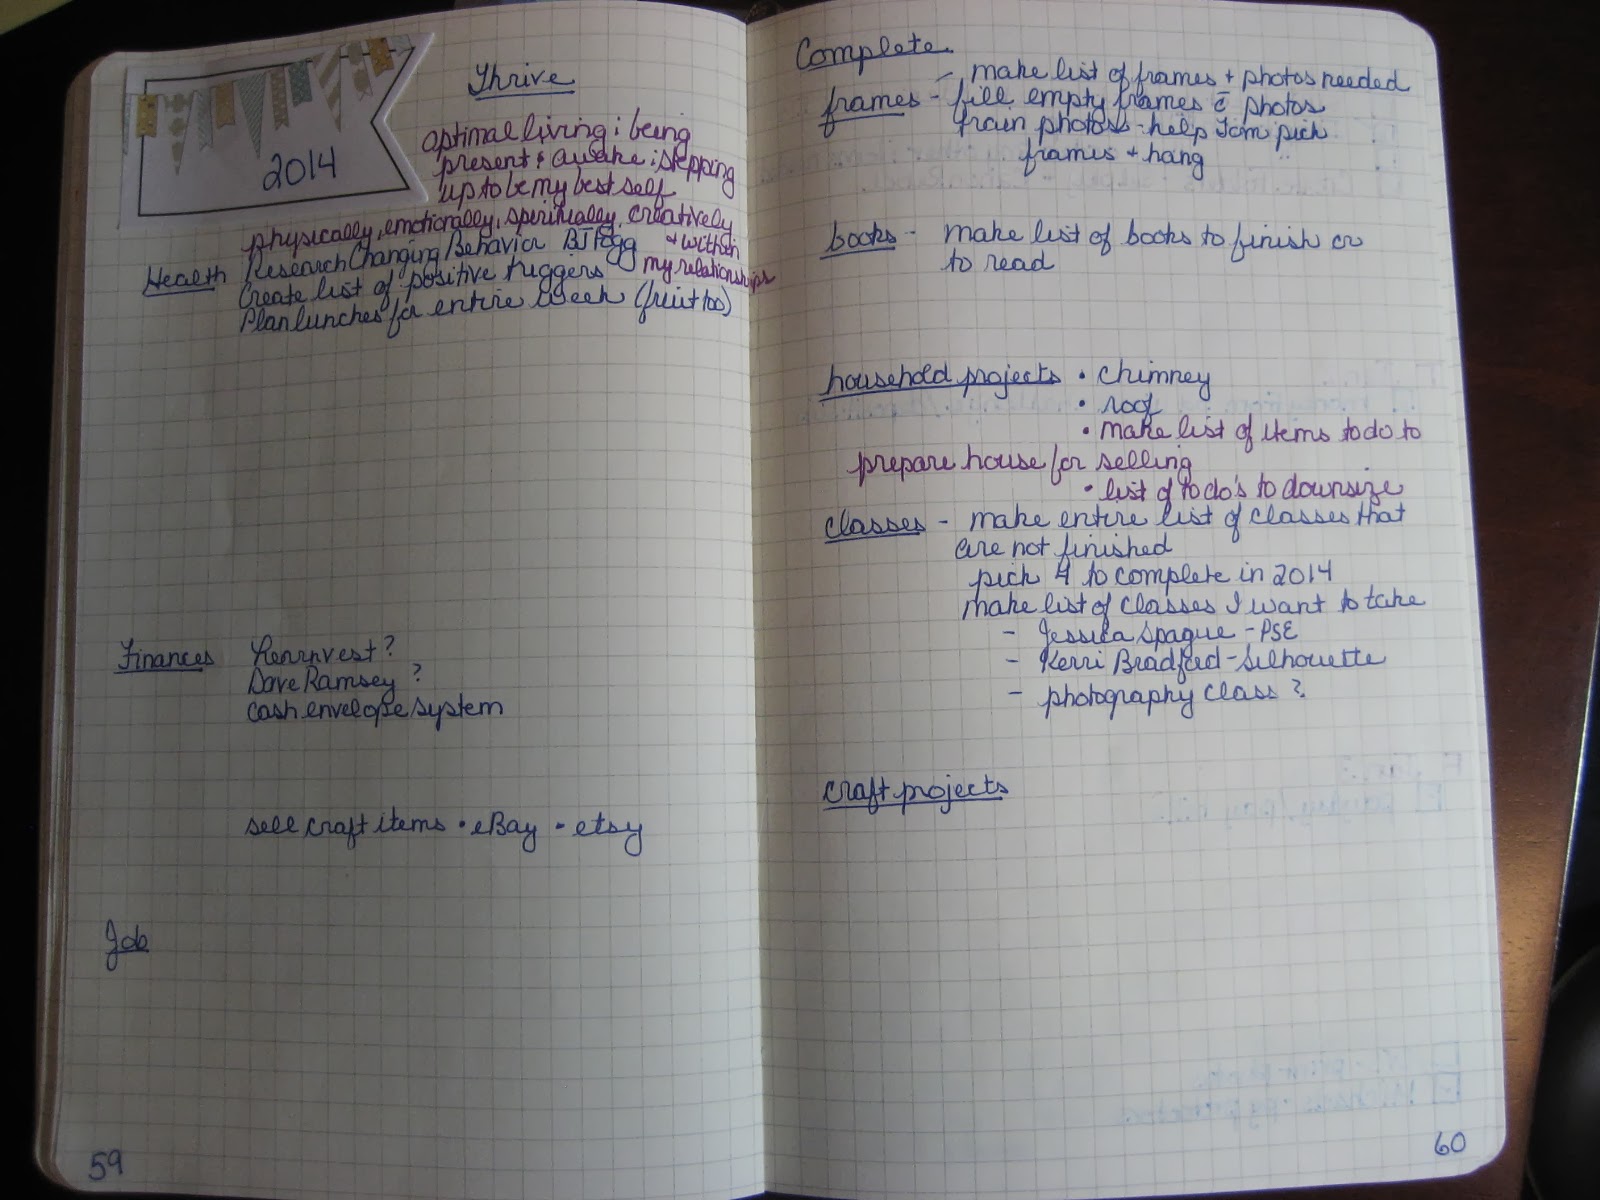 2014
Thrive
optimal living; being
present & awake; stepping
up to be my best self
physically, emotionally, spiritually, creatively
& within
my relationships
Health Research Changing Behavior BJ Fogg
Create list of positive triggers
Plan lunches for entire week (fruit too)
Finances Learnvest?
Dave Ramsey?
cash envelope system
sell craft items • eBay • etsy
Job
59
Complete
- make list of frames + photos needed
frames - fill empty frames c̄ photos
train photos - help Tom pick
frames + hang
books - make list of books to finish or
to read
household projects • chimney
• roof
• make list of items to do to
prepare house for selling
• list of to do's to downsize
classes - make entire list of classes that
are not finished
pick 4 to complete in 2014
make list of classes I want to take
- Jessica Spague - PSE
- Kerri Bradford - Silhouette
- photography class?
craft projects
60